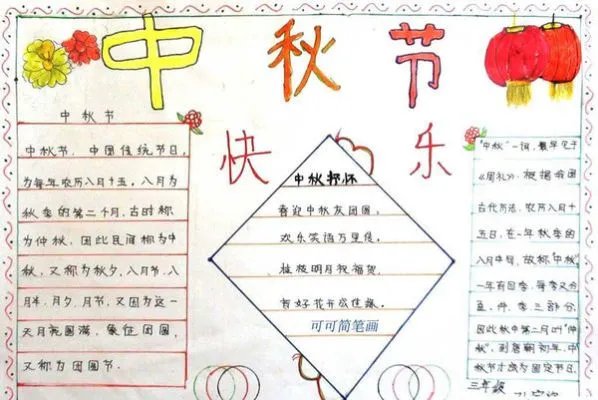 中秋节
快乐
中秋节
中秋节，中国传统节日，
为每年农历八月十五，八月为
秋季的第二个月，古时称
为仲秋，因此民间称为中
秋，又称为秋夕，八月节，八
月半，月夕，月节，又因为这一
天月亮圆满，象征团圆，
又称为团圆节.
中秋抒怀
喜迎中秋友团圆，
欢乐笑语万里传。
桂枝明月祝福贺，
智好花开成佳缘。
可可简笔画
"中秋"一词，最早见于
《周礼》。根据我国
古代历法，农历八月十
五日，在一年秋季的
八月中旬，故称"中秋"
一年有四季，每季又分
孟、仲、季三部分，
因此秋中第二月叫"仲
秋"，到唐朝初年，中
秋节才成为固定节日。
三年级